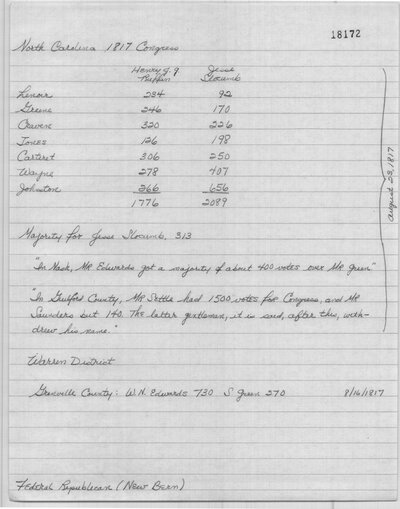 18172
North Carolina 1817 Congress
Henry J. G. Jesse
Ruffin Slocumb
Lenoir 234 92
Greene 246 170
Craven 320 226
Jones 126 198
Carteret 306 250
Wayne 278 407
Johnston 266 656
1776 2089
August 23, 1817
Majority for Jesse Slocumb, 313
"In Nash, Mr Edwards got a majority of about 400 votes over Mr Green"
"In Guilford County, Mr Settle had 1500 votes for Congress, and Mr
Saunders but 140. The latter gentleman, it is said, after this, with-
drew his name."
Warren District
Granville County: W.N. Edwards 730 S Green 270 8/16/1817
Federal Republican (New Bern)